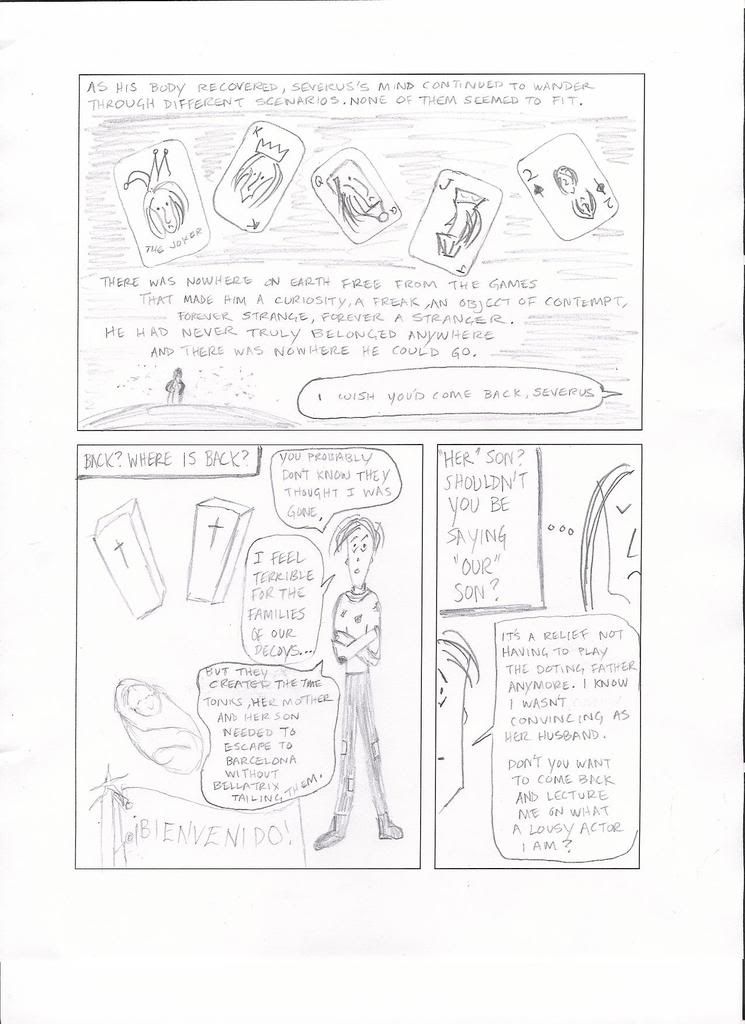 AS HIS BODY RECOVERED, SEVERUS'S MIND CONTINUED TO WANDER
THROUGH DIFFERENT SCENARIOS. NONE OF THEM SEEMED TO FIT.
THE JOKER
K
K
Q
Q
J
J
2
2
THERE WAS NOWHERE ON EARTH FREE FROM THE GAMES
THAT MADE HIM A CURIOSITY, A FREAK, AN OBJECT OF CONTEMPT,
FOREVER STRANGE, FOREVER A STRANGER.
HE HAD NEVER TRULY BELONGED ANYWHERE
AND THERE WAS NOWHERE HE COULD GO.
I WISH YOU'D COME BACK, SEVERUS
BACK? WHERE IS BACK?
YOU PROBABLY
DON'T KNOW THEY
THOUGHT I WAS
GONE.
I FEEL
TERRIBLE
FOR THE
FAMILIES
OF OUR
DECOYS...
BUT THEY
CREATED THE TIME
TONKS, HER MOTHER
AND HER SON
NEEDED TO
ESCAPE TO
BARCELONA
WITHOUT
BELLATRIX
TAILING THEM.
¡BIENVENIDO!
"HER" SON?
SHOULDN'T
YOU BE
SAYING
"OUR"
SON?
...
IT'S A RELIEF NOT
HAVING TO PLAY
THE DOTING FATHER
ANYMORE. I KNOW
I WASN'T
CONVINCING AS
HER HUSBAND.
DON'T YOU WANT
TO COME BACK
AND LECTURE
ME ON WHAT
A LOUSY ACTOR
I AM?